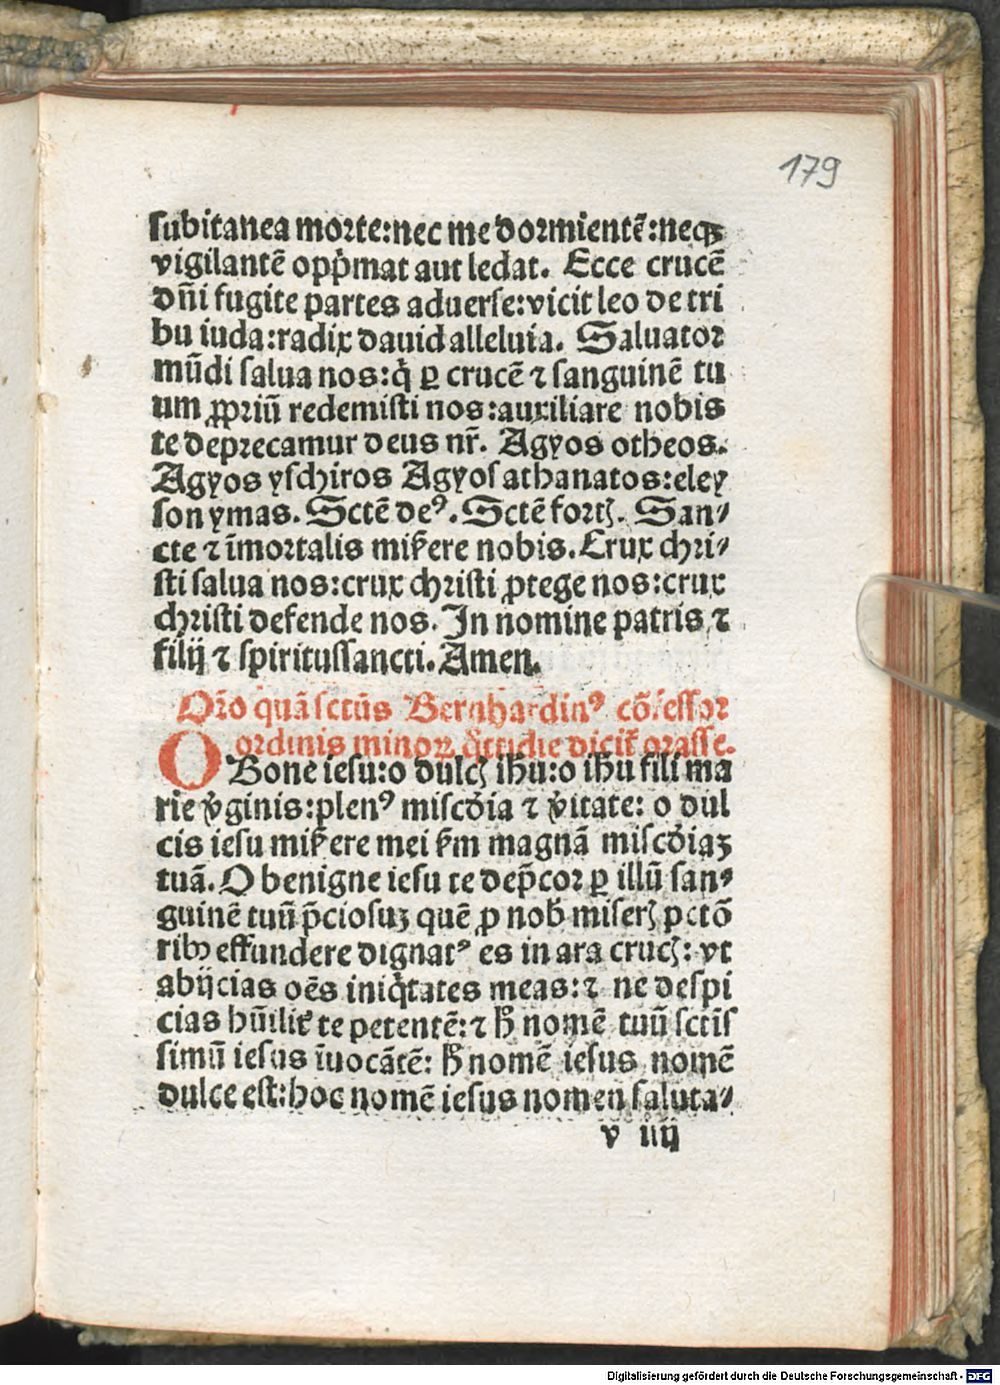 179
subitanea morte:nec me dormientē:neqꝫ
vigilantē opp̄mat aut ledat. Ecce crucē
dn̄i fugite partes aduerse:vicit leo de tri
bu iuda:radix dauid alleluia. Saluator
mūdi salua nos:q̇ ꝑ crucē ⁊ sanguinē tu
um ꝓpriū redemisti nos:auxiliare nobis
te deprecamur deus nr̄. Agyos otheos.
Agyos yschiros Agyos athanatos:eley
son ymas. Sctē deꝰ. Sctē fortꝭ. San⸗
cte ⁊ īmortalis mis̄ere nobis. Crux chri⸗
sti salua nos:crux christi ꝓtege nos:crux
christi defende nos. In nomine patris ⁊
filij ⁊ spiritussancti. Amen.
Or̄o quā sctūs Bernhardinꝰ cōfessor
ordinis minoꝝ q̇ttidie dicit̄ orasse.
O Bone iesu:o dulcꝭ ih̄u:o ih̄u fili ma
rie v̇ginis:plenꝰ misc̄dia ⁊ v̇itate: o dul
cis iesu mis̄ere mei s̄m magnā misc̄diaꝫ
tuā. O benigne iesu te dep̄cor ꝑ illū san⸗
guinē tuū p̄ciosuꝫ quē ꝓ nob̄ miserꝭ pctō
ribꝰ effundere dignatꝰ es in ara crucꝭ: vt
abijcias oēs iniq̇tates meas:⁊ ne despi
cias hūilit̄ te petentē:⁊ h̄ nomē tuū sctīs
simū iesus īuocātē: h̄ nomē iesus nomē
dulce est:hoc nomē iesus nomen saluta⸗
v iiij
Digitalisierung gefördert durch die Deutsche Forschungsgemeinschaft - DFG